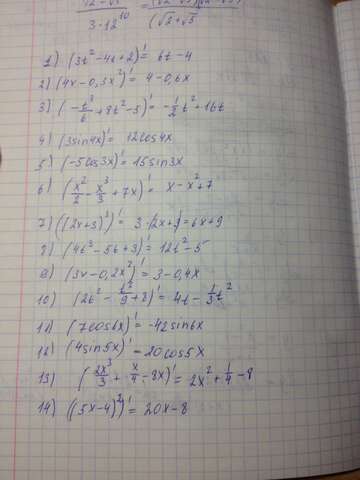 3·12¹⁰ (√2+√5
1) (3t²-4t+2)' = 6t-4
2) (4x-0,3x²)' = 4-0,6x
3) (-t³/6+8t²-5)' = -1/2t²+16t
4) (3sin4x)' = 12cos4x
5) (-5cos3x)' = 15sin3x
6) (x²/2-x³/3+7x)' = x-x²+7
7) ((2x+3)³)' = 3·(2x+3)=6x+9
8) (4t³-5t+3)' = 12t²-5
9) (3x-0,2x²)' = 3-0,4x
10) (2t²-t³/9+8)' = 4t-1/3t²
11) (7cos6x)' = -42sin6x
12) (4sin5x)' = 20cos5x
13) (2x³/3+x/4-8x)' = 2x²+1/4-8
14) ((5x-4)²)' = 20x-8